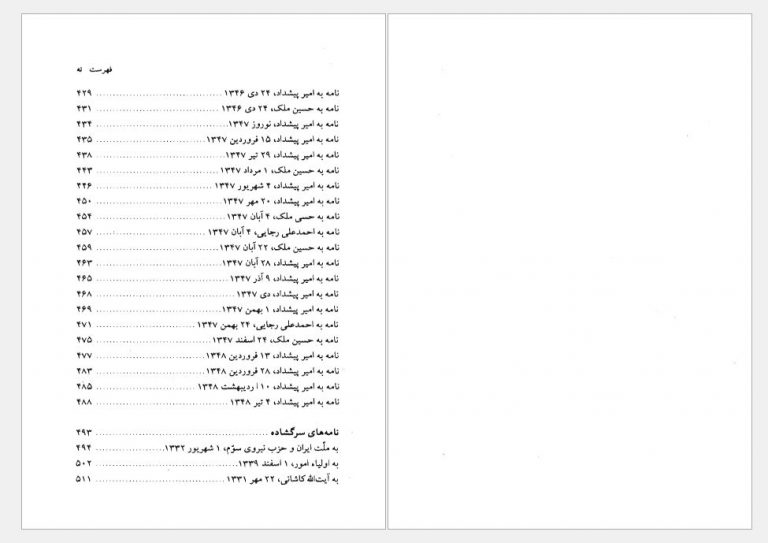 فهرست نه
نامه به امیر پیشداد، ۲۴ دی ۱۳۴۶ ........ ۴۲۹
نامه به حسین ملک، ۲۴ دی ۱۳۴۶ ........ ۴۳۱
نامه به امیر پیشداد، نوروز ۱۳۴۷ ........ ۴۳۴
نامه به امیر پیشداد، ۱۵ فروردین ۱۳۴۷ ........ ۴۳۵
نامه به امیر پیشداد، ۲۹ تیر ۱۳۴۷ ........ ۴۳۸
نامه به حسین ملک، ۱ مرداد ۱۳۴۷ ........ ۴۴۳
نامه به امیر پیشداد، ۴ شهریور ۱۳۴۷ ........ ۴۴۶
نامه به امیر پیشداد، ۲۰ مهر ۱۳۴۷ ........ ۴۵۰
نامه به حسی ملک، ۴ آبان ۱۳۴۷ ........ ۴۵۴
نامه به احمدعلی رجایی، ۴ آبان ۱۳۴۷ ........ ۴۵۷
نامه به حسین ملک، ۲۲ آبان ۱۳۴۷ ........ ۴۵۹
نامه به امیر پیشداد، ۲۸ آبان ۱۳۴۷ ........ ۴۶۳
نامه به امیر پیشداد، ۹ آذر ۱۳۴۷ ........ ۴۶۵
نامه به امیر پیشداد، دی ۱۳۴۷ ........ ۴۶۸
نامه به امیر پیشداد، ۱ بهمن ۱۳۴۷ ........ ۴۶۹
نامه به احمدعلی رجایی، ۲۴ بهمن ۱۳۴۷ ........ ۴۷۱
نامه به حسین ملک، ۲۴ اسفند ۱۳۴۷ ........ ۴۷۵
نامه به امیر پیشداد، ۱۳ فروردین ۱۳۴۸ ........ ۴۷۷
نامه به امیر پیشداد، ۲۸ فروردین ۱۳۴۸ ........ ۴۸۳
نامه به امیر پیشداد، ۱۰ اردیبهشت ۱۳۴۸ ........ ۴۸۵
نامه به امیر پیشداد، ۴ تیر ۱۳۴۸ ........ ۴۸۸
نامه‌های سرگشاده ........ ۴۹۳
به ملّت ایران و حزب نیروی سوّم، ۱ شهریور ۱۳۳۲ ........ ۴۹۴
به اولیاء امور، ۱ اسفند ۱۳۳۹ ........ ۵۰۲
به آیت‌الله کاشانی، ۲۲ مهر ۱۳۳۱ ........ ۵۱۱